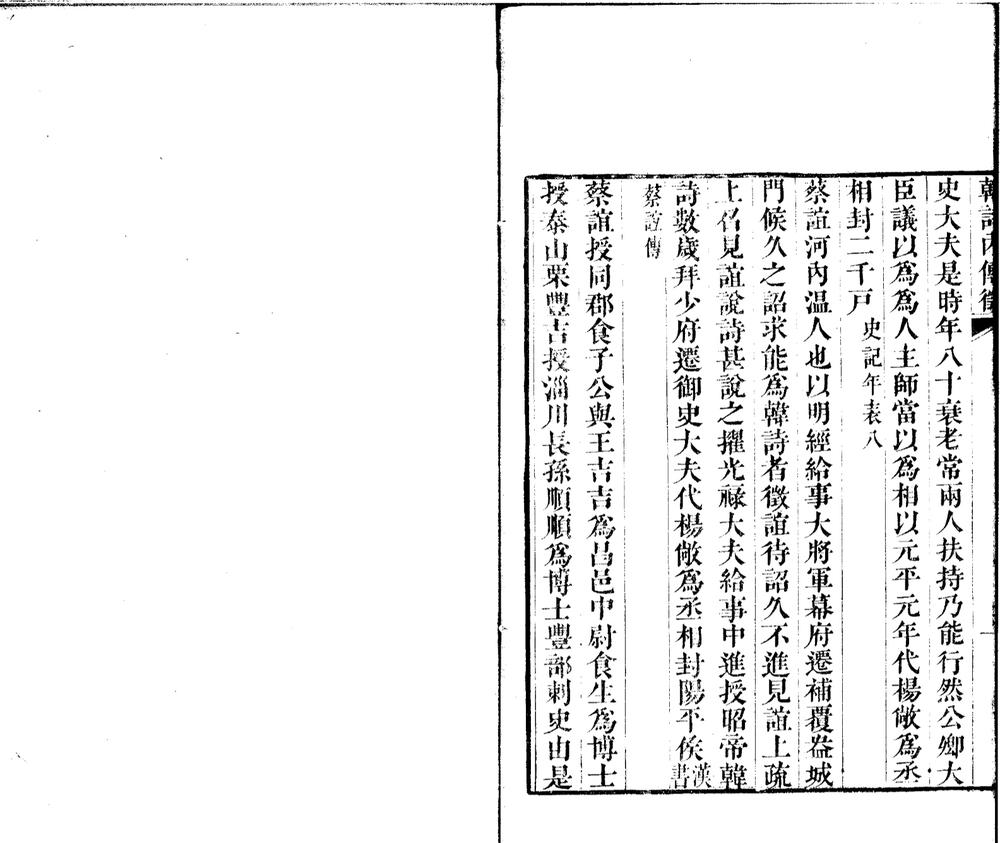 韓詩內傳徵
史大夫是時年八十衰老常兩人扶持乃能行然公卿大
臣議以爲爲人主師當以爲相以元平元年代楊敞爲丞
相封二千戸史記年表八
蔡誼河內温人也以明經給事大將軍幕府遷補覆盎城
門候久之詔求能爲韓詩者徵誼待詔久不進見誼上疏
上召見誼說詩甚說之擢光祿大夫給事中進授昭帝韓
詩數歲拜少府遷御史大夫代楊敞爲丞相封陽平侯漢書
蔡誼傳
蔡誼授同郡食子公與王吉吉爲昌邑中尉食生爲博士
授泰山栗豐吉授淄川長孫順順爲博士豐部刺史由是